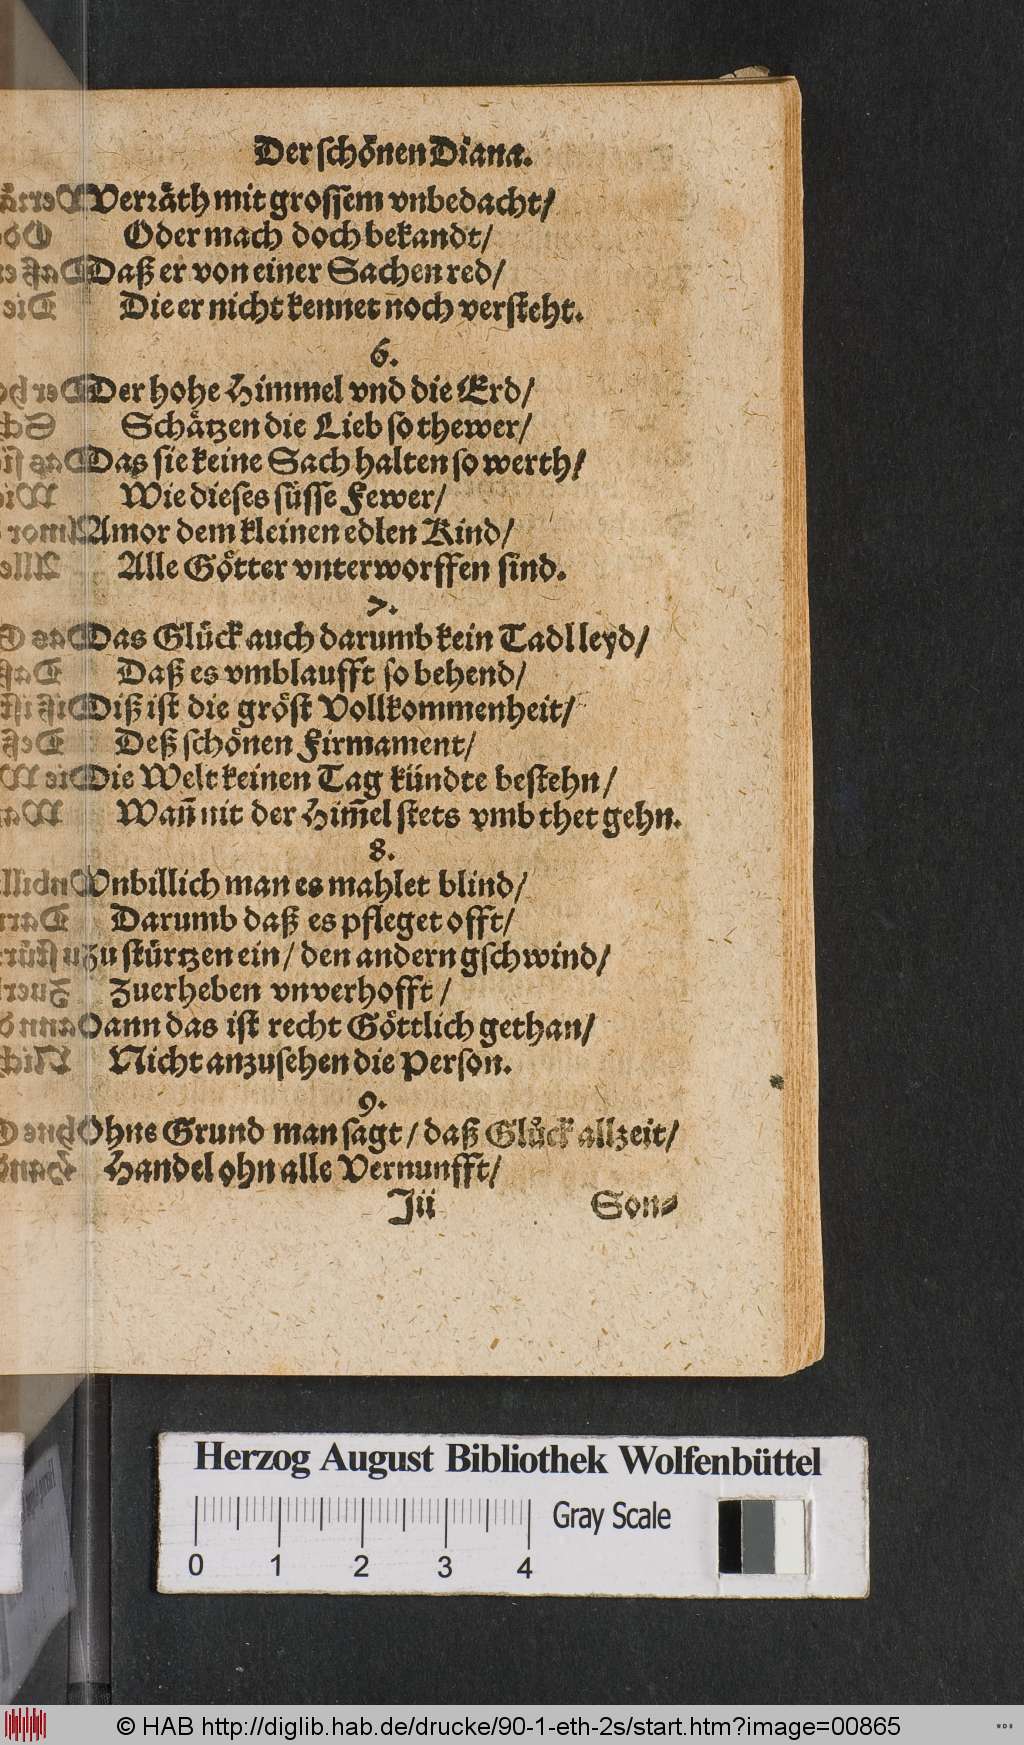 Der schönen Diana.
Verräth mit grossem vnbedacht/
Oder mach doch bekandt/
Daß er von einer Sachen red/
Die er nicht kennet noch versteht.
6.
Der hohe Himmel vnd die Erd/
Schätzen die Lieb so thewer/
Das sie keine Sach halten so werth/
Wie dieses süsse Fewer/
Amor dem kleinen edlen Kind/
Alle Götter vnterworffen sind.
7.
Das Glück auch darumb kein Tadl leyd/
Daß es vmblaufft so behend/
Diß ist die gröst Vollkommenheit/
Deß schönen Firmament/
Die Welt keinen Tag kündte bestehn/
Wañ nit der Him̃el stets vmb thet gehn.
8.
Vnbillich man es mahlet blind/
Darumb daß es pfleget offt/
Zu stürtzen ein/ den andern gschwind/
Zuerheben vnverhofft/
Dann das ist recht Göttlich gethan/
Nicht anzusehen die Person.
9.
Ohne Grund man sagt/ daß Glück allzeit/
Handel ohn alle Vernunfft/
Jii Son-
Herzog August Bibliothek Wolfenbüttel
Gray Scale
0 1 2 3 4
© HAB http://diglib.hab.de/drucke/90-1-eth-2s/start.htm?image=00865